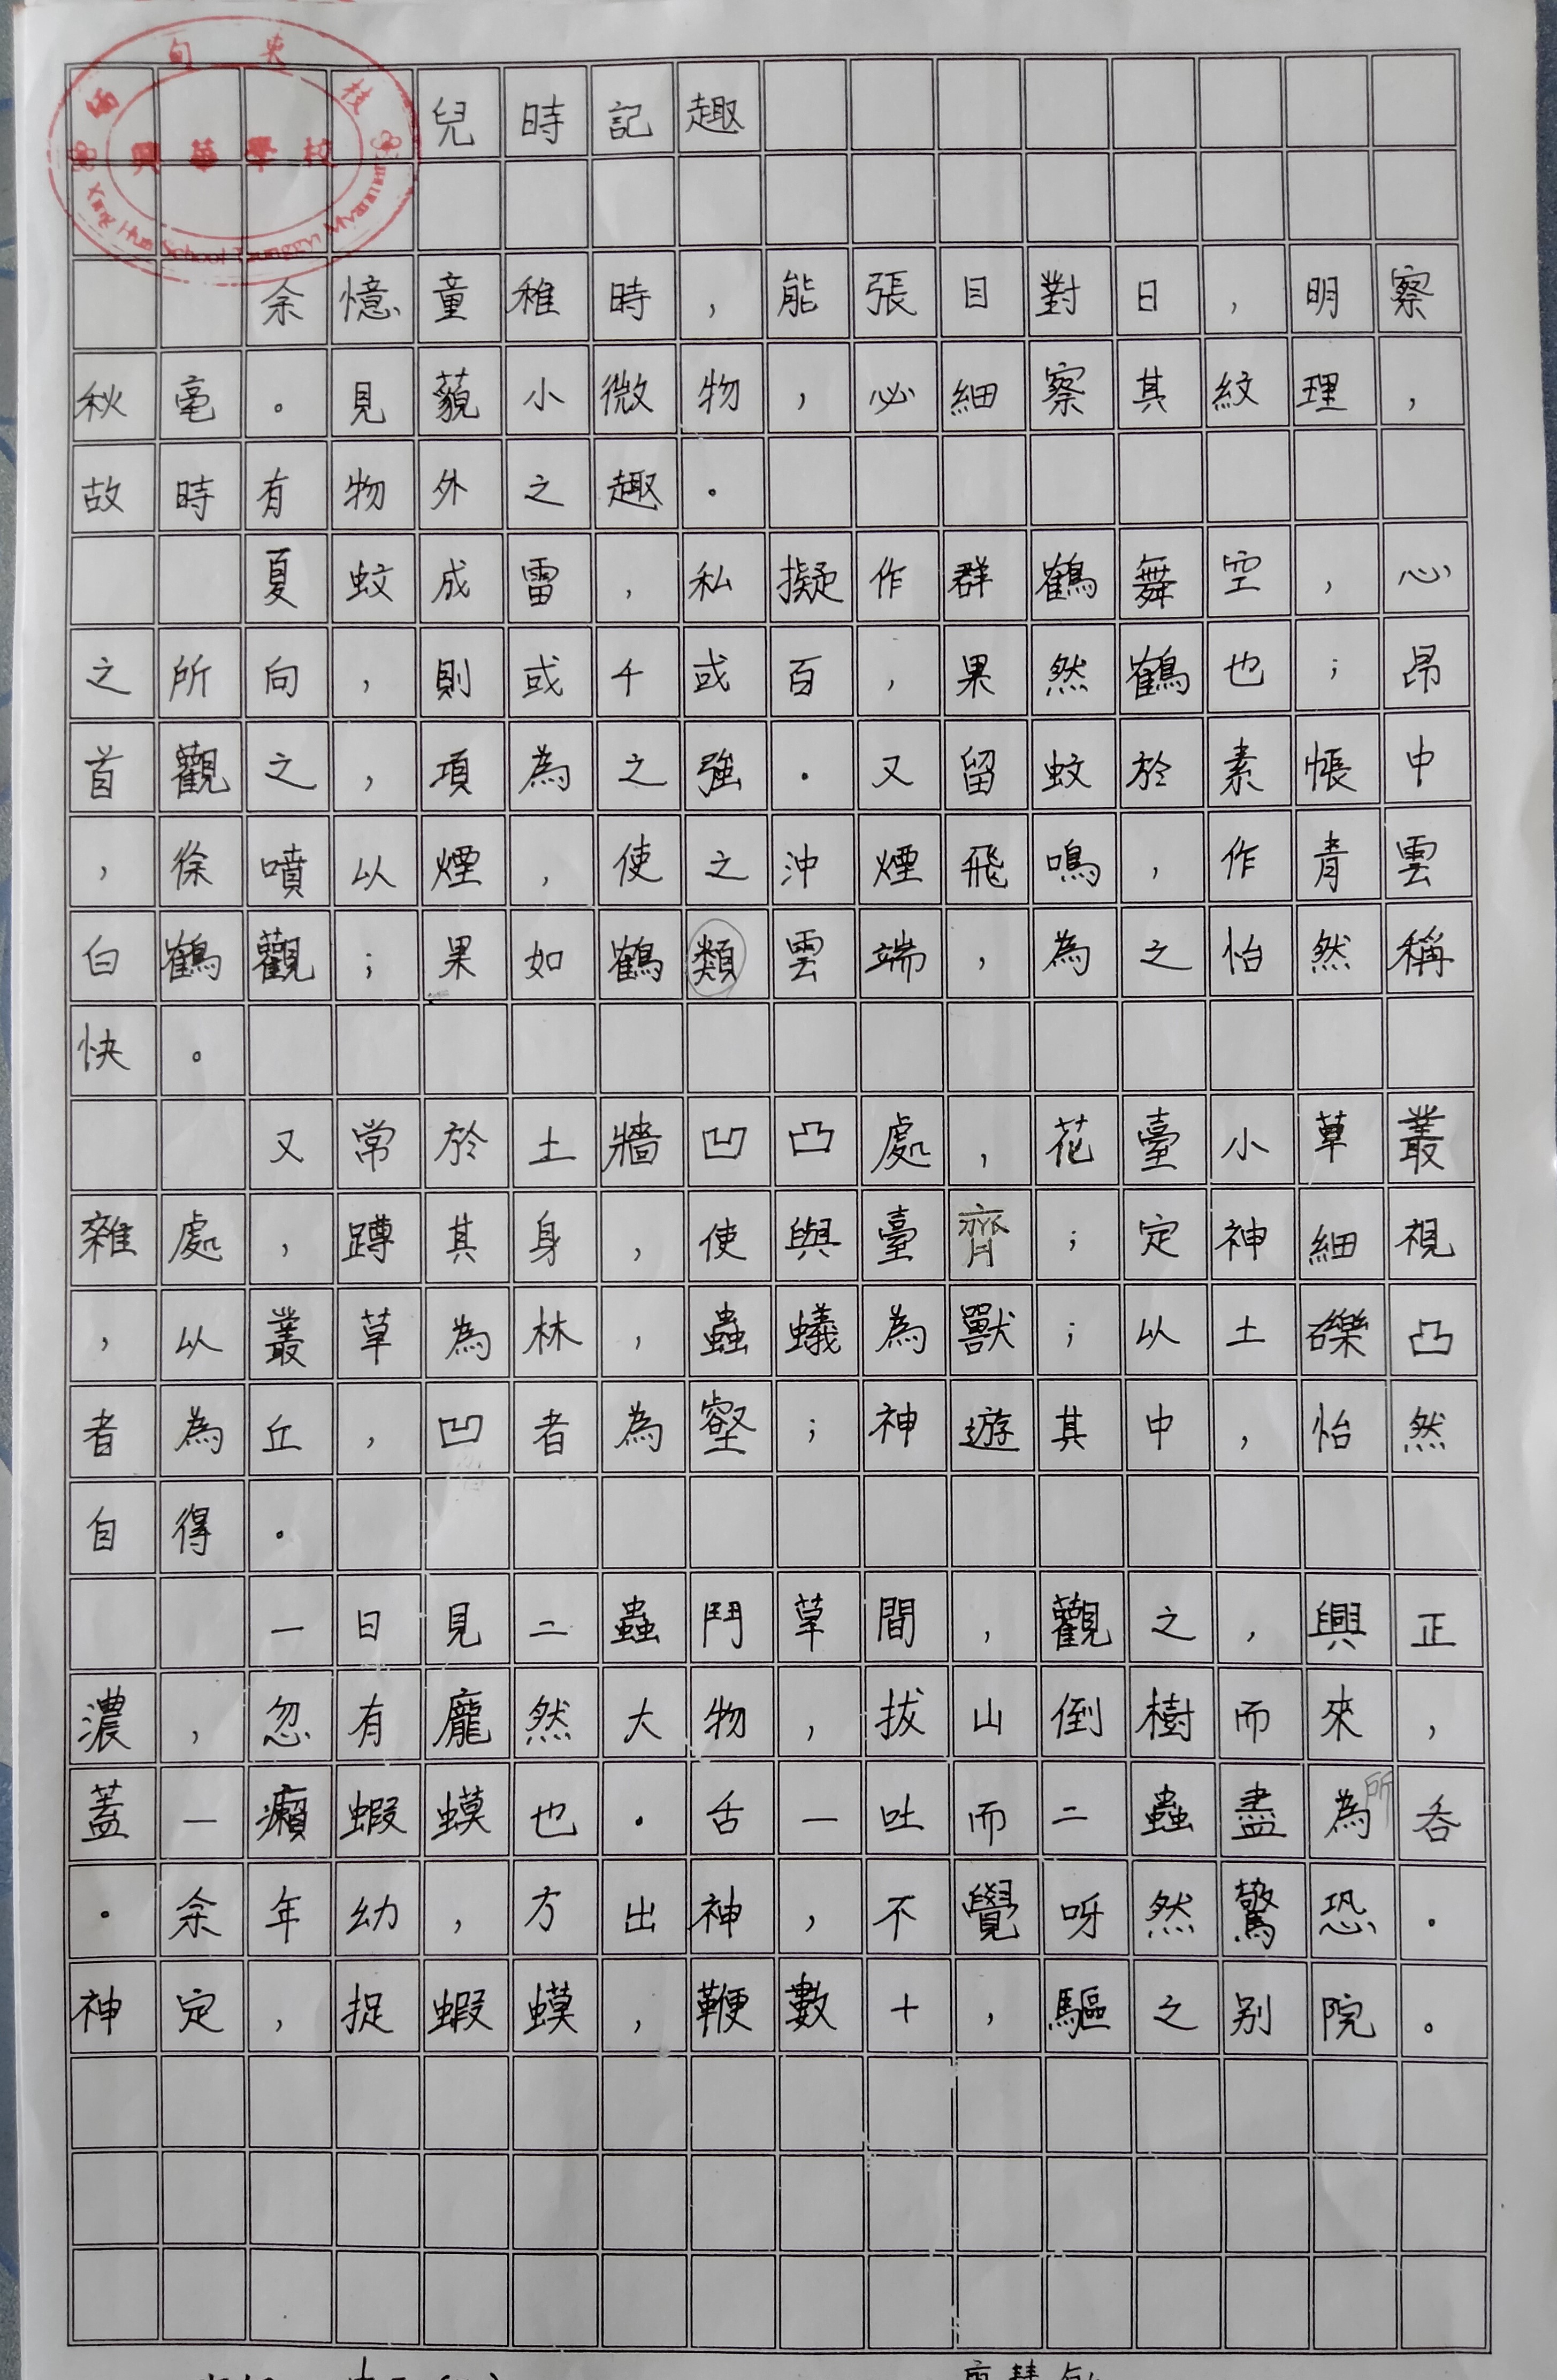 緬甸東枝
興華學校
Xing Hua School Taunggyi Myanmar
兒時記趣
余憶童稚時，能張目對日，明察
秋毫。見藐小微物，必細察其紋理，
故時有物外之趣。
夏蚊成雷，私擬作群鶴舞空，心
之所向，則或千或百，果然鶴也；昂
首觀之，項為之強。又留蚊於素帳中
，徐噴以煙，使之沖煙飛鳴，作青雲
白鶴觀；果如鶴類雲端，為之怡然稱
快。
又常於土牆凹凸處，花臺小草叢
雜處，蹲其身，使與臺齊；定神細視
，以叢草為林，蟲蟻為獸；以土礫凸
者為丘，凹者為壑；神遊其中，怡然
自得。
一日見二蟲鬥草間，觀之，興正
濃，忽有龐然大物，拔山倒樹而來，
蓋一癩蝦蟆也。舌一吐而二蟲盡為所吞
。余年幼，方出神，不覺呀然驚恐。
神定，捉蝦蟆，鞭數十，驅之别院。